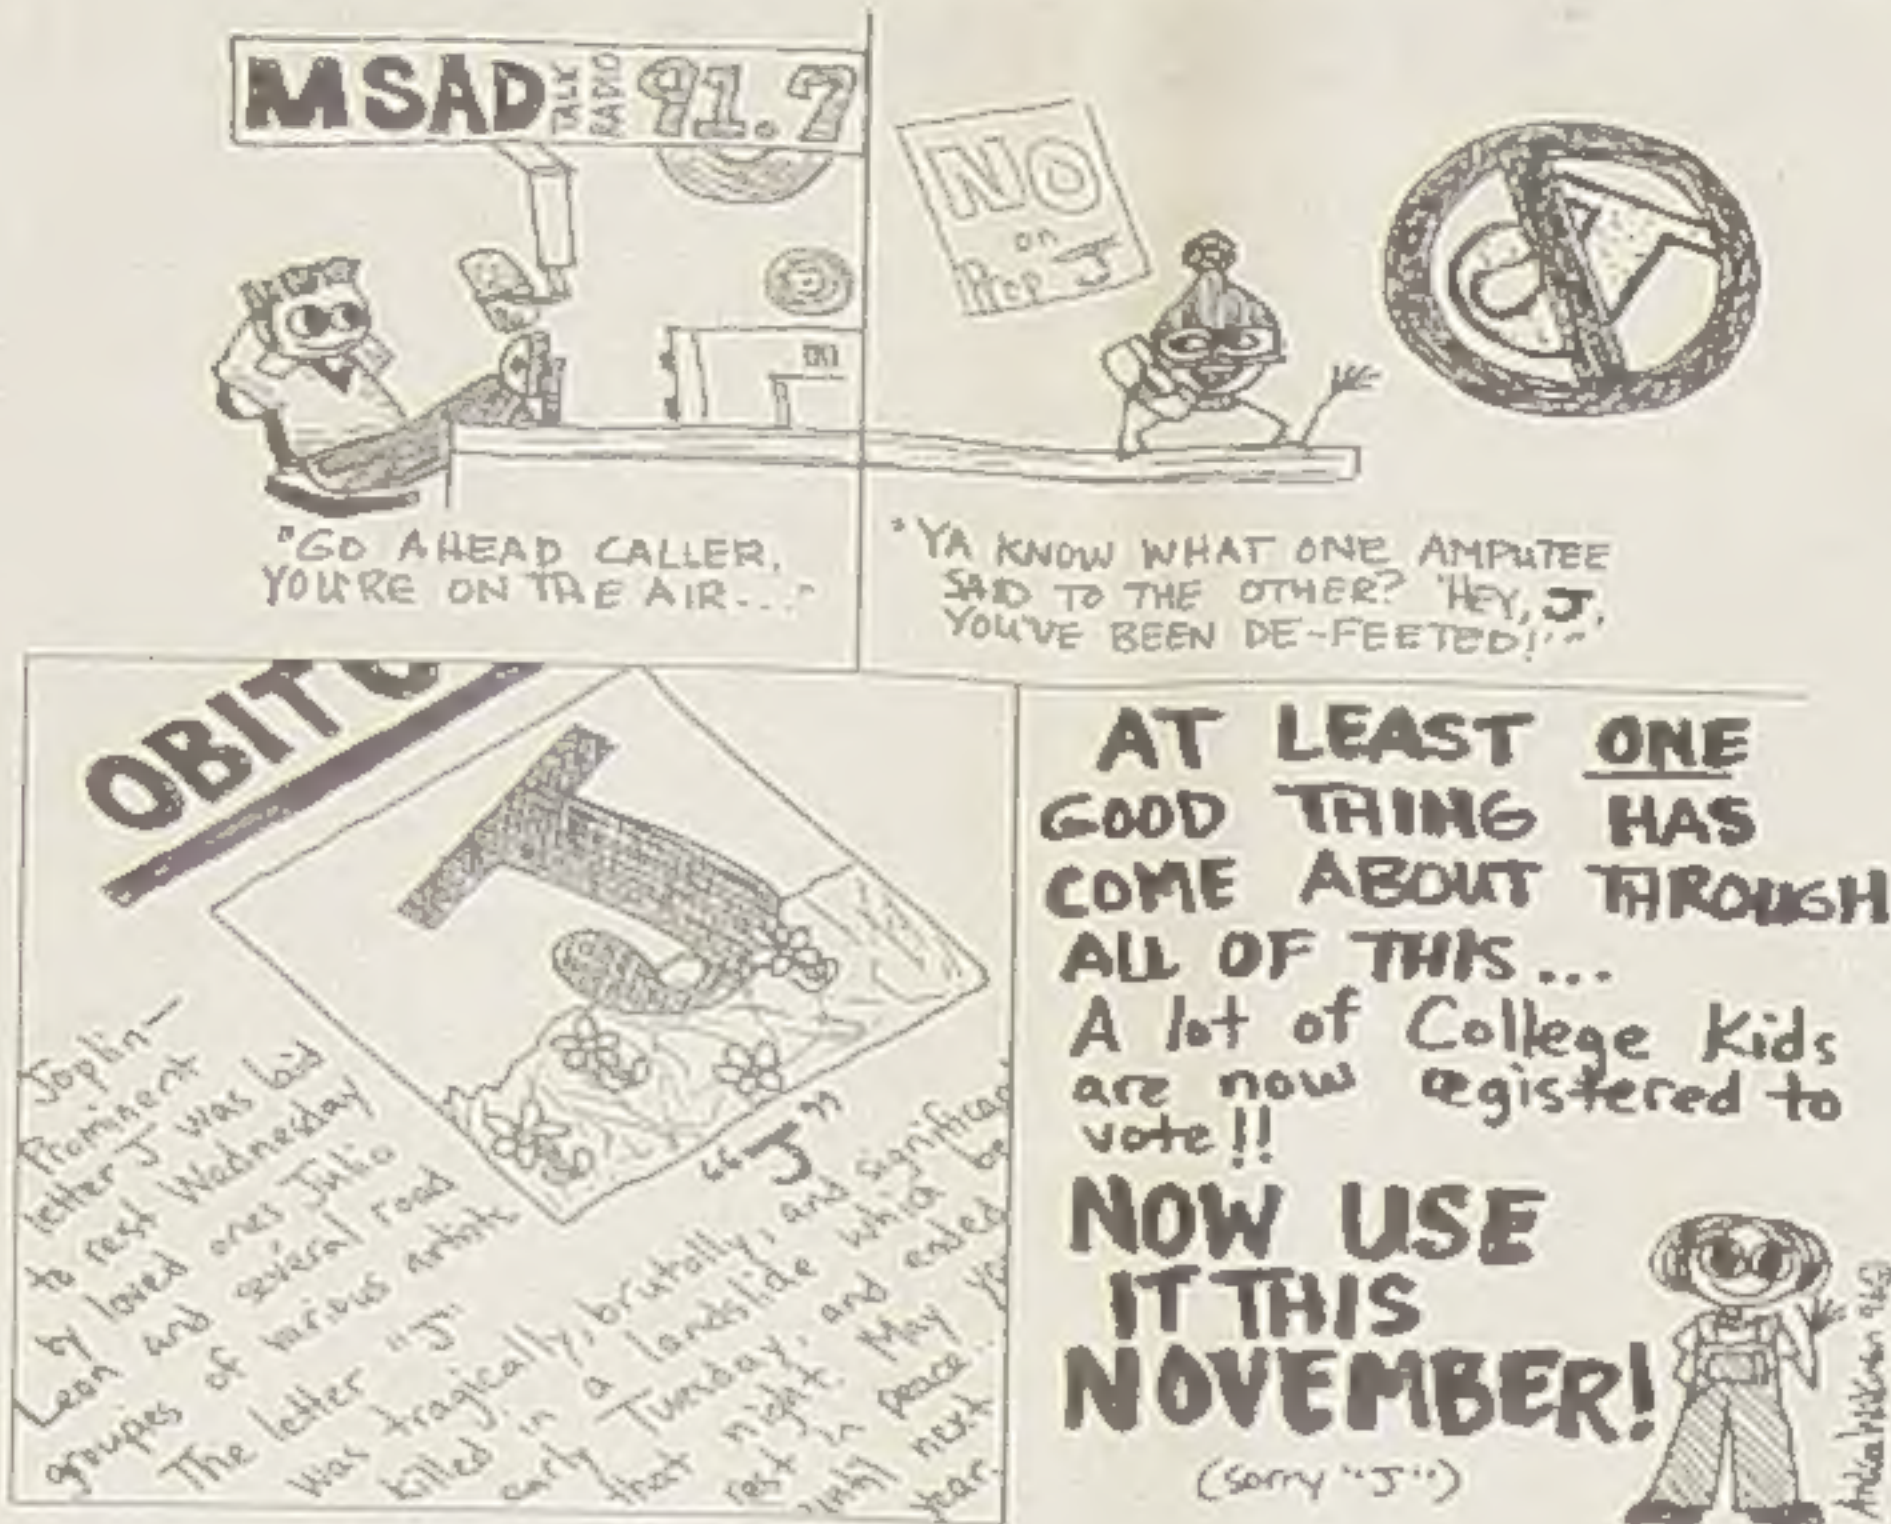 MSAD TALK RADIO 91.7
NO
on
Prop J
"GO AHEAD CALLER,
YOU'RE ON THE AIR...."
"YA KNOW WHAT ONE AMPUTEE
SAID TO THE OTHER? 'HEY, J,
YOU'VE BEEN DE-FEETED!'"
OBITU
Joplin—
Prominent
letter J was laid
to rest Wednesday
by loved ones Julio
Leon and several road
groupies of various artists
"J"
The letter "J"
was tragically, brutally, and significa
killed in a landslide which be
early Tuesday, and ended
that night. May yo
rest in peace..
until next
year.
AT LEAST ONE
GOOD THING HAS
COME ABOUT THROUGH
ALL OF THIS...
A lot of College Kids
are now registered to
vote!!
NOW USE
IT THIS
NOVEMBER!
(sorry "J")